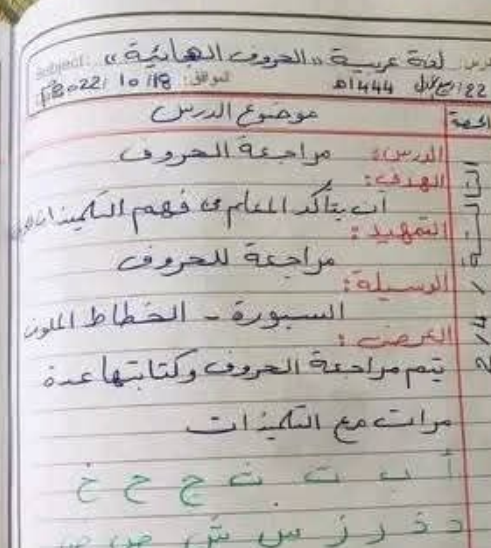 لغة عربية "الحروف الهجائية"
Subject:
22/ربيع الأول 1444هـ الموافق: 18/10/2022م
الحصة موضوع الدرس
الدرس: مراجعة الحروف
الهدف:
أن يتأكد المعلم من فهم التلميذات
التمهيد:
مراجعة للحروف
الوسيلة:
السبورة - الخطاط الملون
العرض:
يتم مراجعة الحروف وكتابتها عدة
مرات مع التلميذات
أ ب ت ث ج ح خ
د ذ ر ز س ش ص ض